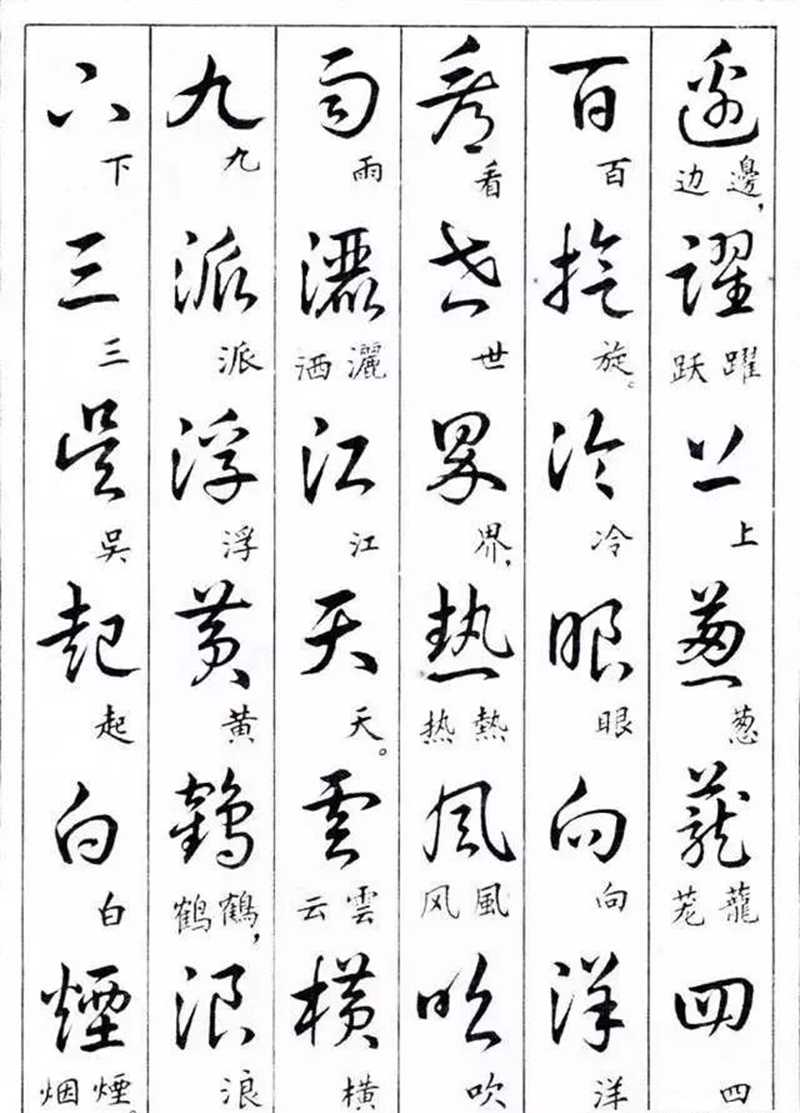 邊 邊,边 躍 躍跃 上 上 葱 葱 蘢 蘢茏 四 四
百 百 旋 旋。 冷 冷 眼 眼 向 向 洋 洋
看 看 世 世 界 界, 热 熱热 风 風风 吹 吹
雨 雨 灑 灑洒 江 江 天 天。 雲 雲云 横 横
九 九 派 派 浮 浮 黄 黄 鶴 鶴,鹤 浪 浪
下 下 三 三 吴 吴 起 起 白 白 煙 煙。烟